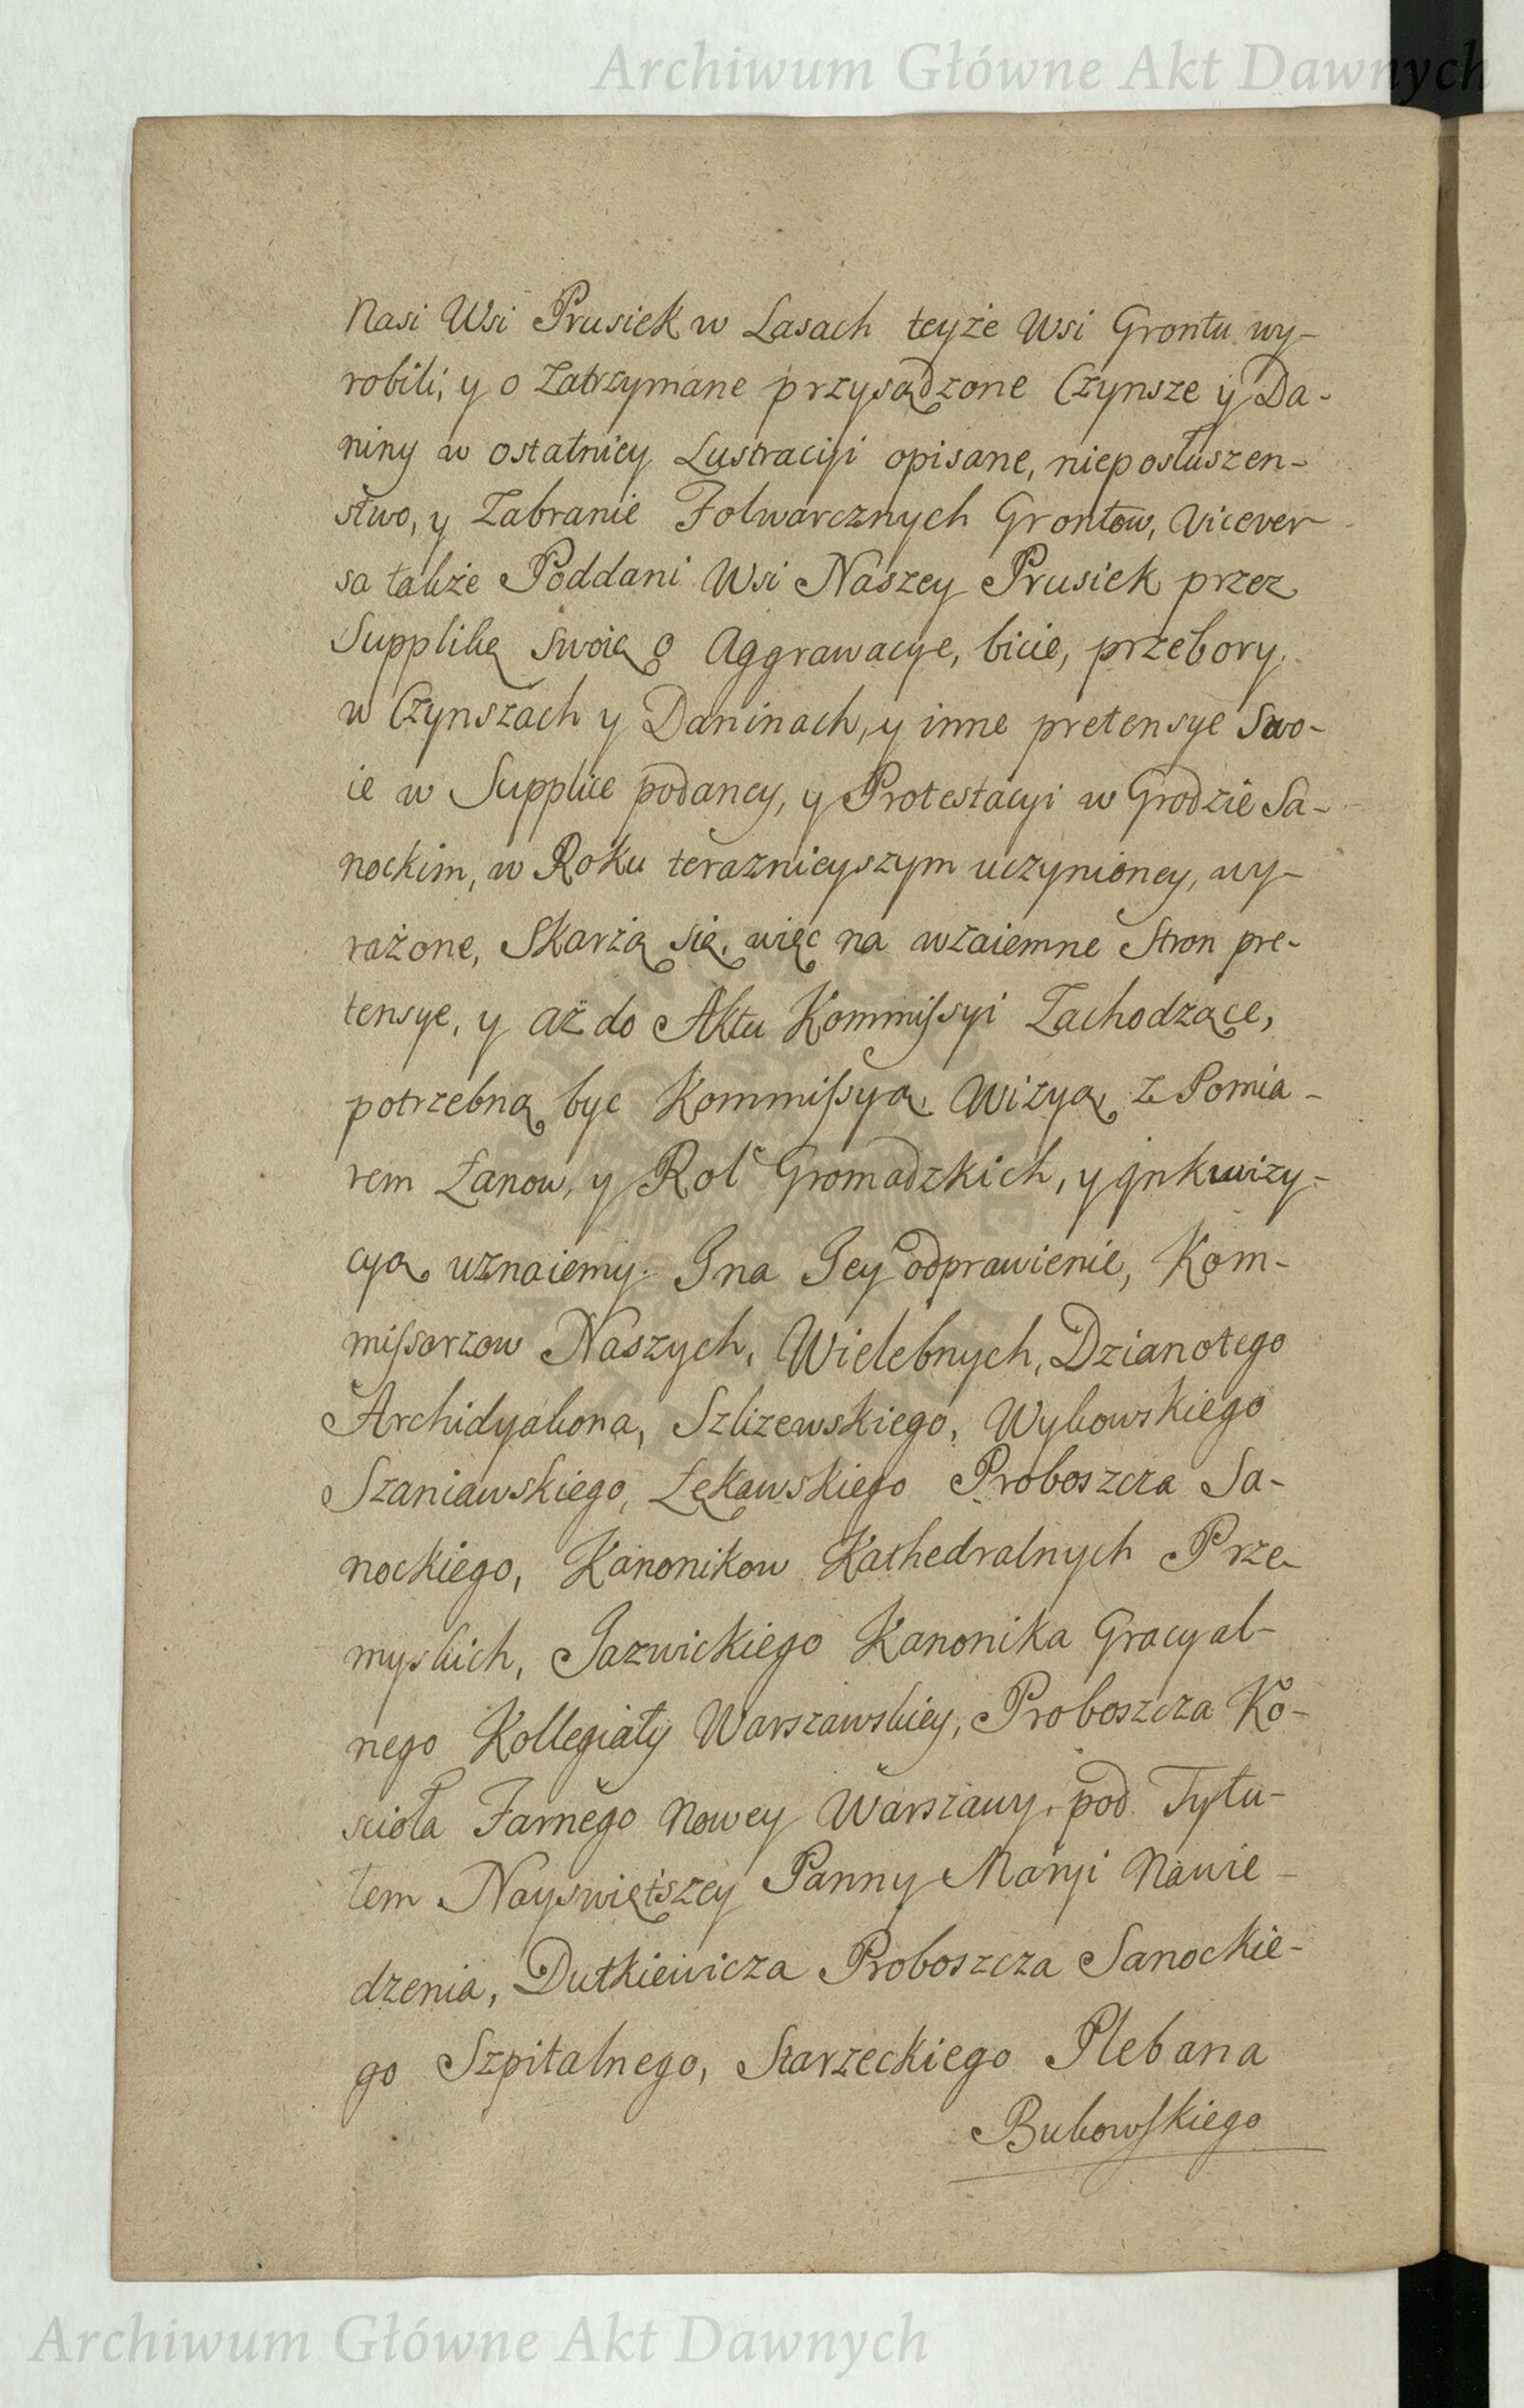 Archiwum Główne Akt Dawnych
Nasi Wsi Prusiek w Lasach teyże Wsi Grontu wy-
robili, y o Zatrzymane przysądzone Czynsze y Da-
niny w ostatniey Lustracyi opisane, nieposłuszen-
stwo, y Zabranie Folwarcznych Grontow, Vicever
sa także Poddani Wsi Naszey Prusiek przez
Supplikę swoię o Aggrawacye, bicie, przebory
w Czynszach y Daninach, y inne pretensye Swo-
ie w Supplice podaney, y Protestacyi w Grodzie Sa-
nockim, w Roku teraznieyszym uczynioney, wy-
rażone, Skarżą się, więc na wzaiemne Stron pre-
tensye, y aż do Aktu Kommissyi Zachodzące,
potrzebną byc Kommissyą, Wizyą, z Pomia-
rem Łanow, y Rol Gromadzkich, y jnkwizy-
cyą uznaiemy. J na Jey odprawienie, Kom-
missarzow Naszych, Wielebnych, Dzianotego
Archidyakona, Szlizewskiego, Wykowskiego
Szaniawskiego, Łękawskiego Proboszcza Sa-
nockiego, Kanonikow Kathedralnych Prze-
myskich, Jazwickiego Kanonika Gracyal-
nego Kollegiaty Warszawskiey, Proboszcza Ko-
scioła Farnego Nowey Warszawy pod Tytu-
łem Nayswiętszey Panny Maryi Nawie-
dzenia, Dutkiewicza Proboszcza Sanockie-
go Szpitalnego, Starzeckiego Plebana
Bukowskiego
Archiwum Główne Akt Dawnych